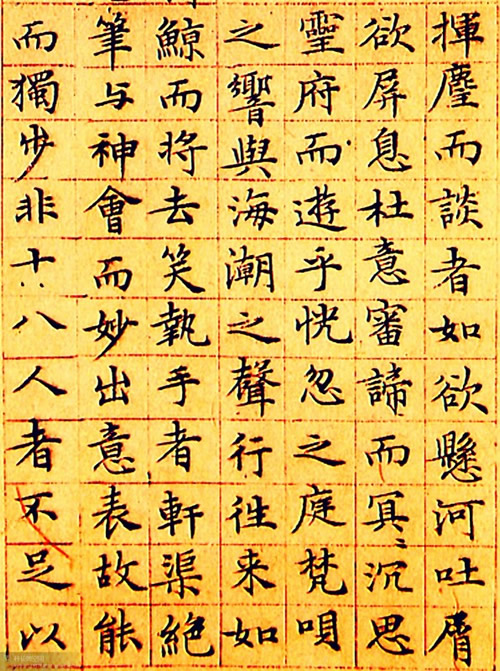 揮麈而談者如欲懸河吐屑
欲屏息杜意審諦而冥冥沉思
靈府而遊乎恍忽之庭梵唄
之響與海潮之聲行徃來如
鯨而将去笑執手者軒渠絕
筆与神會而妙出意表故能
而獨步非十八人者不足以